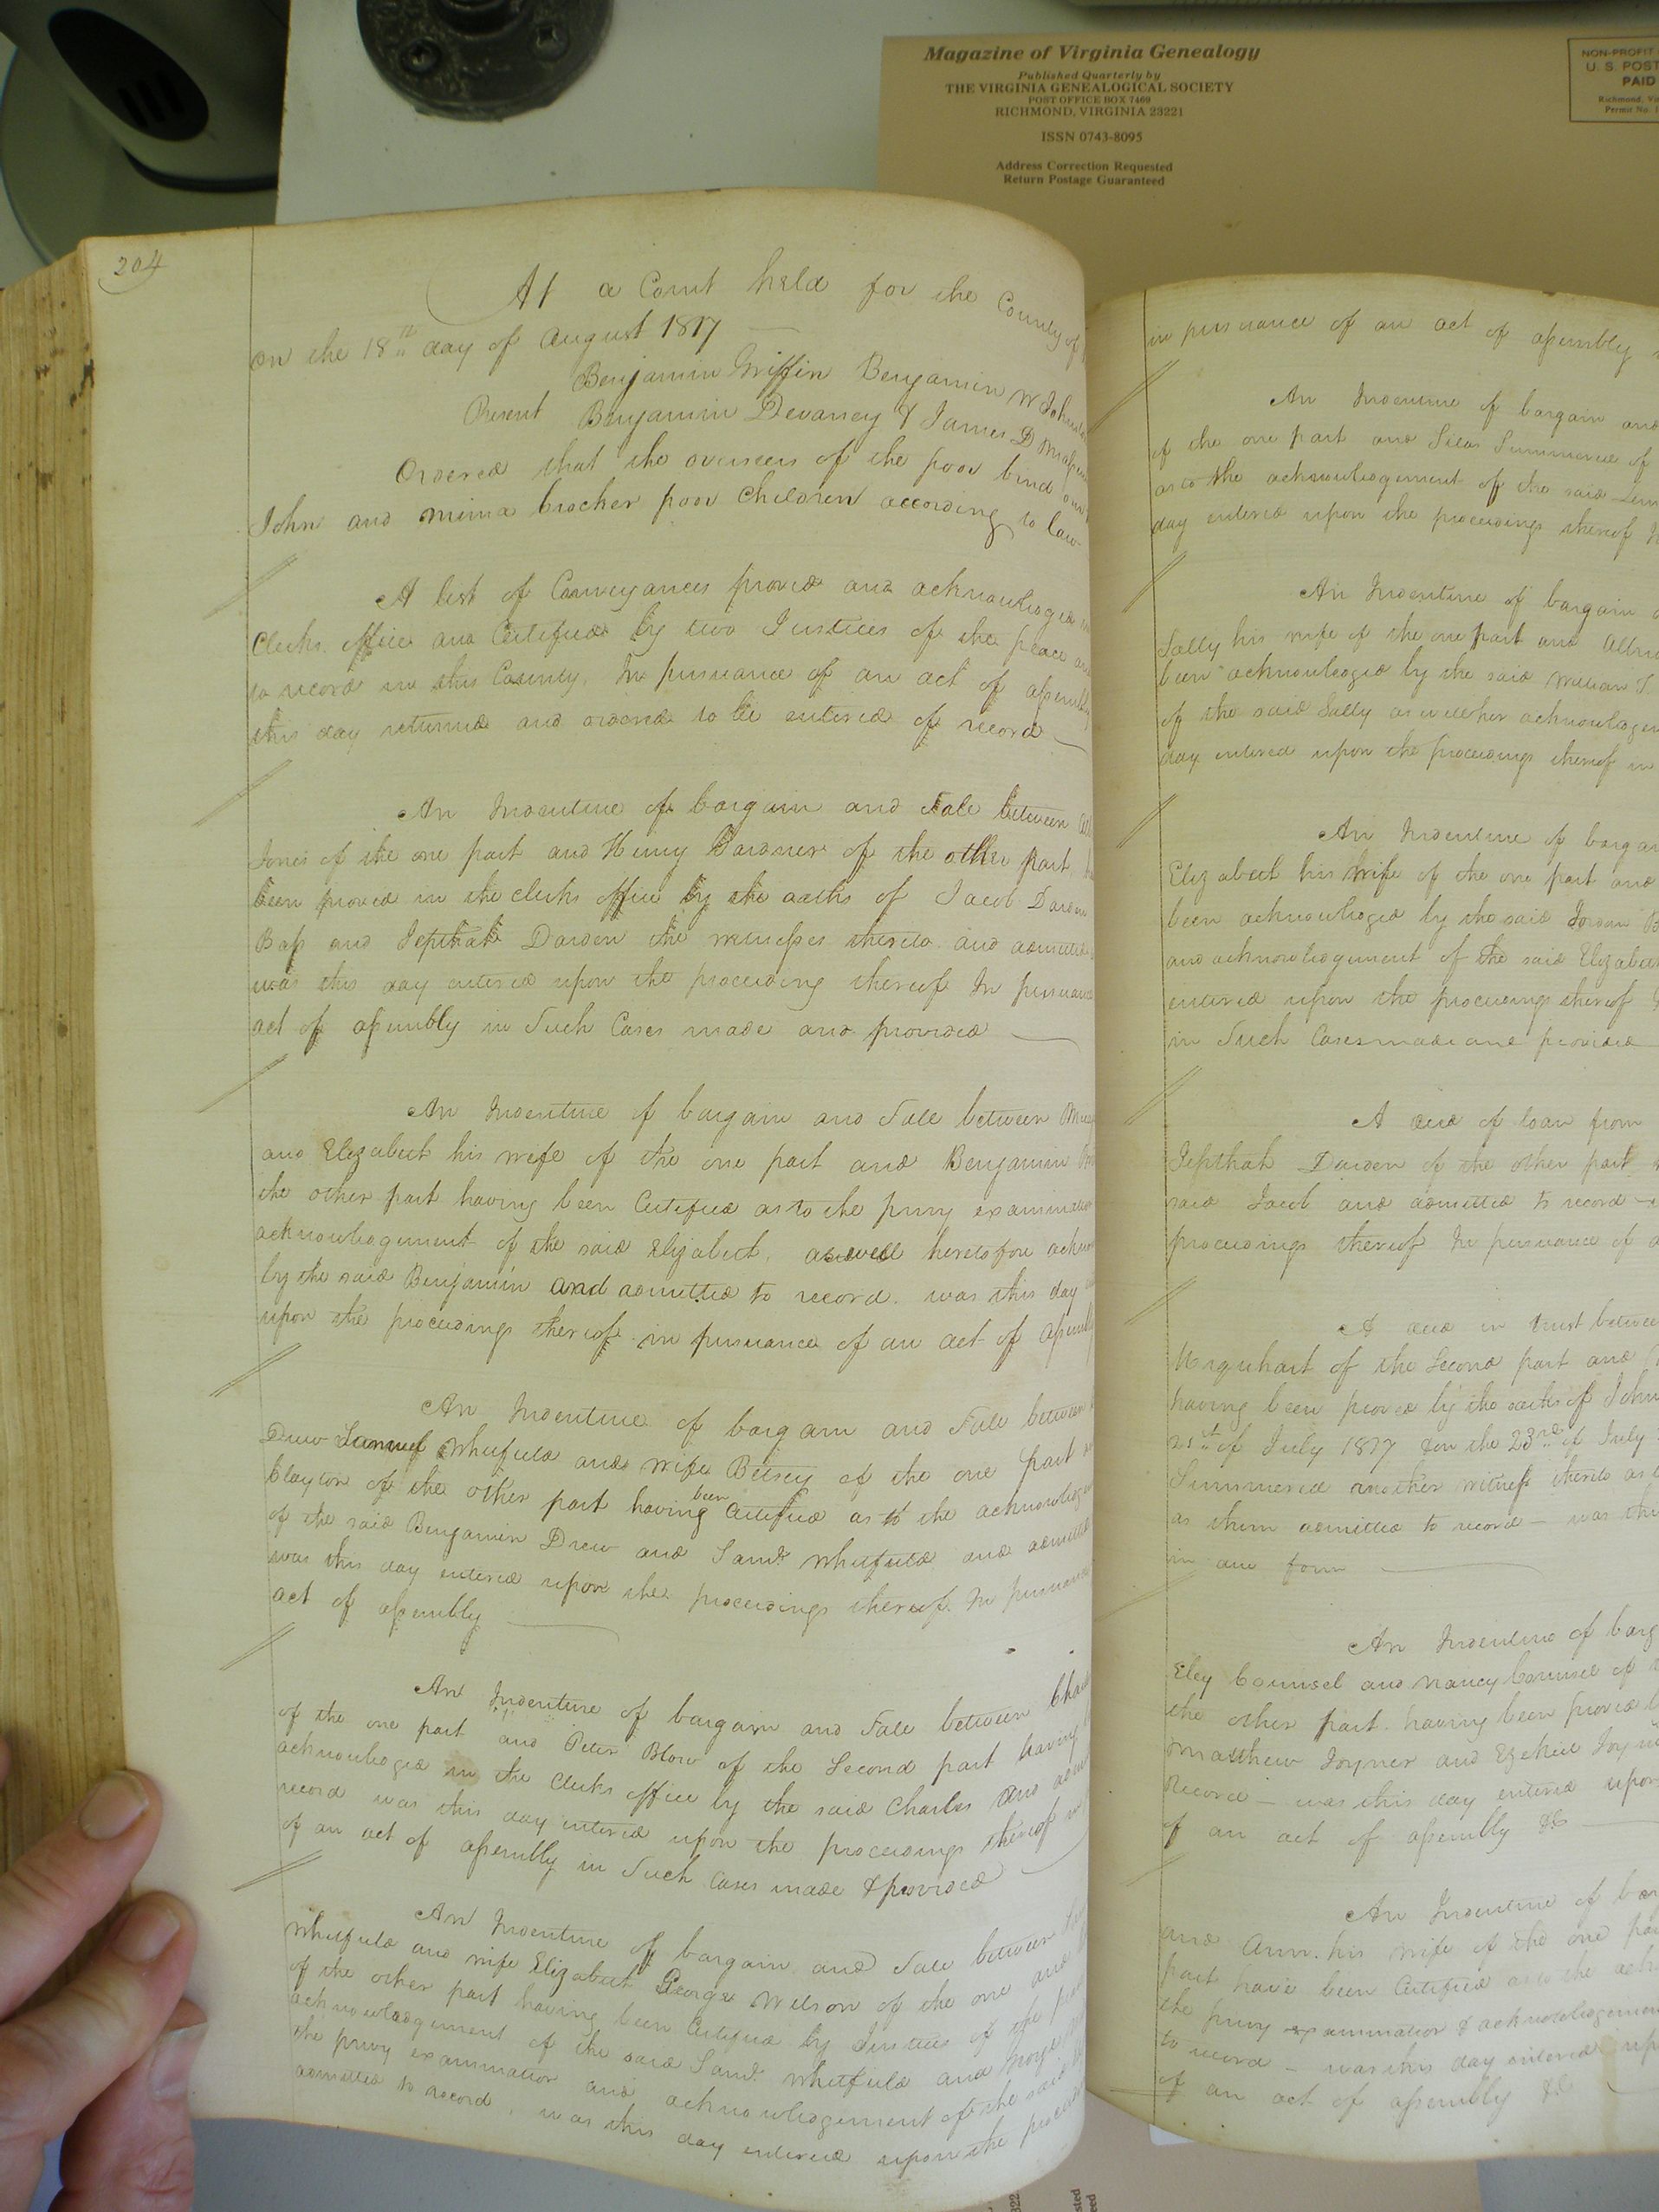 Magazine of Virginia Genealogy
Published Quarterly by
THE VIRGINIA GENEALOGICAL SOCIETY
POST OFFICE BOX 7469
RICHMOND, VIRGINIA 23221
ISSN 0743-8095
Address Correction Requested
Return Postage Guaranteed
NON-PROFIT
U. S. POST
PAID
Richmond, Va
Permit No.
204
At a Court held for the County of
on the 18th day of August 1817
Benjamin Griffin Benjamin W Johnston
Present Benjamin Devaney & James D
Ordered that the overseers of the poor bind out
John and Mima brocher poor Children according to law
A list of Conveyances proved and acknowledged in
Clerks office and Certified by two Justices of the peace and
to record in this County, In pursuance of an act of assembly
this day returned and ordered to be entered of record
An Indenture of bargain and Sale between
Jones of the one part and Henry Gardner of the other part
been proved in the clerks office by the oaths of Jacob Darden
Bass and Jepthah Darden the witnesses thereto and admitted
was this day entered upon the proceeding thereof In pursuance
act of assembly in Such Cases made and provided
An Indenture of bargain and Sale between
and Elizabeth his wife of the one part and Benjamin
the other part having been Certified as to the privy examination
acknowledgement of the said Elizabeth, as well heretofore
by the said Benjamin and admitted to record. was this day
upon the proceedings thereof in pursuance of an act of assembly
An Indenture of bargain and Sale between
Drew Samuel Whitfield and wife Betsey of the one part
Clayton of the other part having been Certified as to the acknowledge
of the said Benjamin Drew and Saml. Whitfield and admitted
was this day entered upon the proceedings thereof. In pursuance
act of assembly
An Indenture of bargain and Sale between Charles
of the one part and Peter Blow of the Second part having
acknowledged in the Clerks office by the said Charles and
record was this day entered upon the proceedings thereof in
of an act of assembly in Such Cases made & provided
An Indenture of bargain and Sale between
Whitfield and wife Elizabeth George Wilson of the one and
of the other part having been Certified by Justices of the peace
acknowledgement of the said Saml. Whitfield and George
the privy examination and acknowledgement of the said
admitted to record, was this day entered upon the
in pursuance of an act of assembly
An Indenture of bargain and
of the one part and Silas Summerell of
as to the acknowledgement of the said
day entered upon the proceedings thereof
An Indenture of bargain
Sally his wife of the one part and
been acknowledged by the said William
of the said Sally as well her
day entered upon the proceedings thereof in
An Indenture of
Elizabeth his wife of the one part and
been acknowledged by the said Jordan
and acknowledgement of the said Elizabeth
entered upon the proceedings thereof
in Such Cases made and provided
A deed of loan from
Jepthah Darden of the other part
said Jacob and admitted to record
proceedings thereof In pursuance of
A deed in trust between
Urquhart of the Second part and
having been proved by the oaths of John
21st of July 1817 & on the 23rd of July
Summerell another witness thereto
as them admitted to record — was this
in due form
An Indenture of
Eley Counsel and Nancy Counsel of
the other part. having been proved
Matthew Joyner and Ezekiel
Record — was this day entered upon
of an act of assembly &c
An Indenture of
and Ann. his wife of the one part
part have been Certified as to the
the privy examination & acknowledgement
to record — was this day entered
of an act of assembly &c